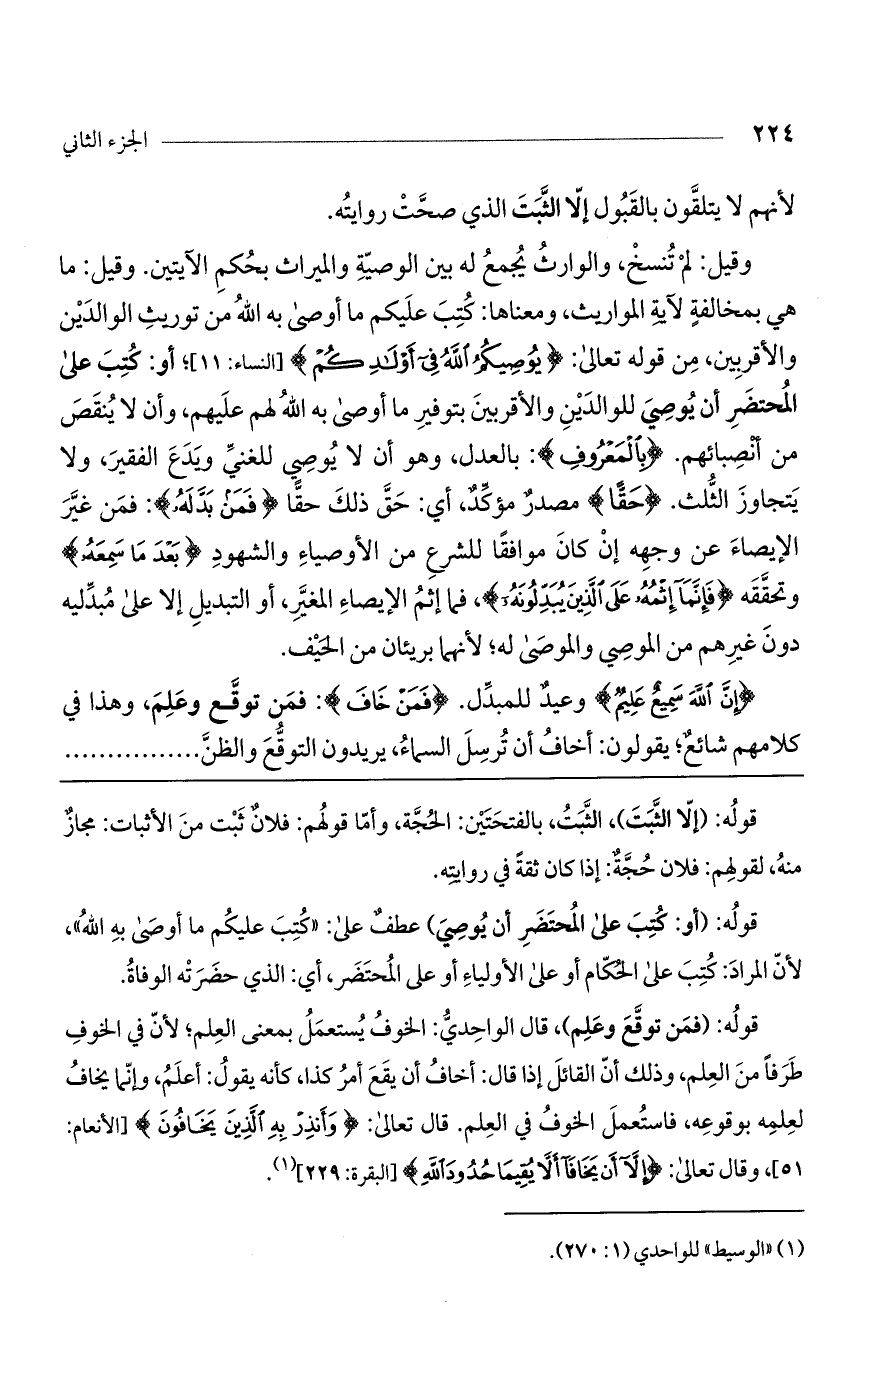 ٢٢٤ الجزء الثاني
لأنهم لا يتلقَّون بالقَبُول إلّا الثَّبَتَ الذي صحَّتْ روايتُه.
وقيل: لمْ تُنسخْ، والوارثُ يُجمعُ له بين الوصيّةِ والميراث بحُكمِ الآيتين. وقيل: ما
هي بمخالفةٍ لآيةِ المواريث، ومعناها: كُتِبَ علَيكم ما أوصىٰ به اللهُ من توريثِ الوالدَيْن
والأقربِين، مِن قوله تعالىٰ: ﴿يُوصِيكُمُ ٱللَّهُ فِىٓ أَوْلَٰدِكُمْ﴾ [النساء: ١١]؛ أو: كُتِبَ علىٰ
المُحتضَرِ أن يُوصِيَ للوالدَيْنِ والأقربينَ بتوفيرِ ما أوصىٰ به اللهُ لهم علَيهم، وأن لا يُنقَصَ
من أنْصِبائهم. ﴿بِٱلْمَعْرُوفِ﴾: بالعدل، وهو أن لا يُوصِي للغنيِّ ويَدَعَ الفقيرَ، ولا
يَتجاوزَ الثُّلث. ﴿حَقًّا﴾ مصدرٌ مؤكِّدٌ، أي: حَقَّ ذلكَ حقًّا ﴿فَمَنۢ بَدَّلَهُۥ﴾: فمَن غيَّرَ
الإيصاءَ عن وجهِه إنْ كانَ موافقًا للشرعِ من الأوصياءِ والشهودِ ﴿بَعْدَ مَا سَمِعَهُۥ﴾
وتحقَّقه ﴿فَإِنَّمَآ إِثْمُهُۥ عَلَى ٱلَّذِينَ يُبَدِّلُونَهُۥٓ﴾، فما إثمُ الإيصاءِ المغيَّرِ، أو التبديلِ إلا علىٰ مُبدِّليه
دونَ غيرِهم من الموصِي والموصَىٰ له؛ لأنهما بريئان من الحَيْف.
﴿إِنَّ ٱللَّهَ سَمِيعٌ عَلِيمٌ﴾ وعيدٌ للمبدِّل. ﴿فَمَنْ خَافَ﴾: فمَن توقَّع وعَلِمَ، وهذا في
كلامهم شائعٌ؛ يقولون: أخافُ أن تُرسِلَ السماءُ، يريدون التوقُّعَ والظنَّ................
قولُه: (إلّا الثَّبَتَ)، الثَّبَتُ، بالفتحَتَيْن: الحُجَّة، وأمّا قولُهم: فلانٌ ثَبْت منَ الأثبات: مجازٌ
منهُ، لقولهِم: فلان حُجَّةٌ: إذا كان ثقةً في روايتِه.
قولُه: (أو: كُتِبَ علىٰ المُحتَضَرِ أن يُوصِيَ) عطفٌ علىٰ: «كُتِبَ عليكُم ما أوصَىٰ بهِ اللهُ»،
لأنّ المرادَ: كُتِبَ علىٰ الحُكّام أو علىٰ الأولياءِ أو على المُحتَضَر، أي: الذي حضَرَتْه الوفاةُ.
قولُه: (فمَن توقَّعَ وعَلِم)، قال الواحِديُّ: الخوفُ يُستعمَلُ بمعنى العِلم؛ لأنّ في الخوفِ
طَرَفاً منَ العِلم، وذلك أنّ القائلَ إذا قال: أخافُ أن يقَعَ أمرُ كذا، كأنه يقولُ: أعلَمُ، وإنّما يخافُ
لعِلمِه بوقوعِه، فاستُعملَ الخوفُ في العِلم. قال تعالىٰ: ﴿وَأَنذِرْ بِهِ ٱلَّذِينَ يَخَافُونَ﴾ [الأنعام:
٥١]، وقال تعالىٰ: ﴿إِلَّآ أَن يَخَافَآ أَلَّا يُقِيمَا حُدُودَ ٱللَّهِ﴾ [البقرة: ٢٢٩](١).
(١) «الوسيط» للواحدي (١: ٢٧٠).